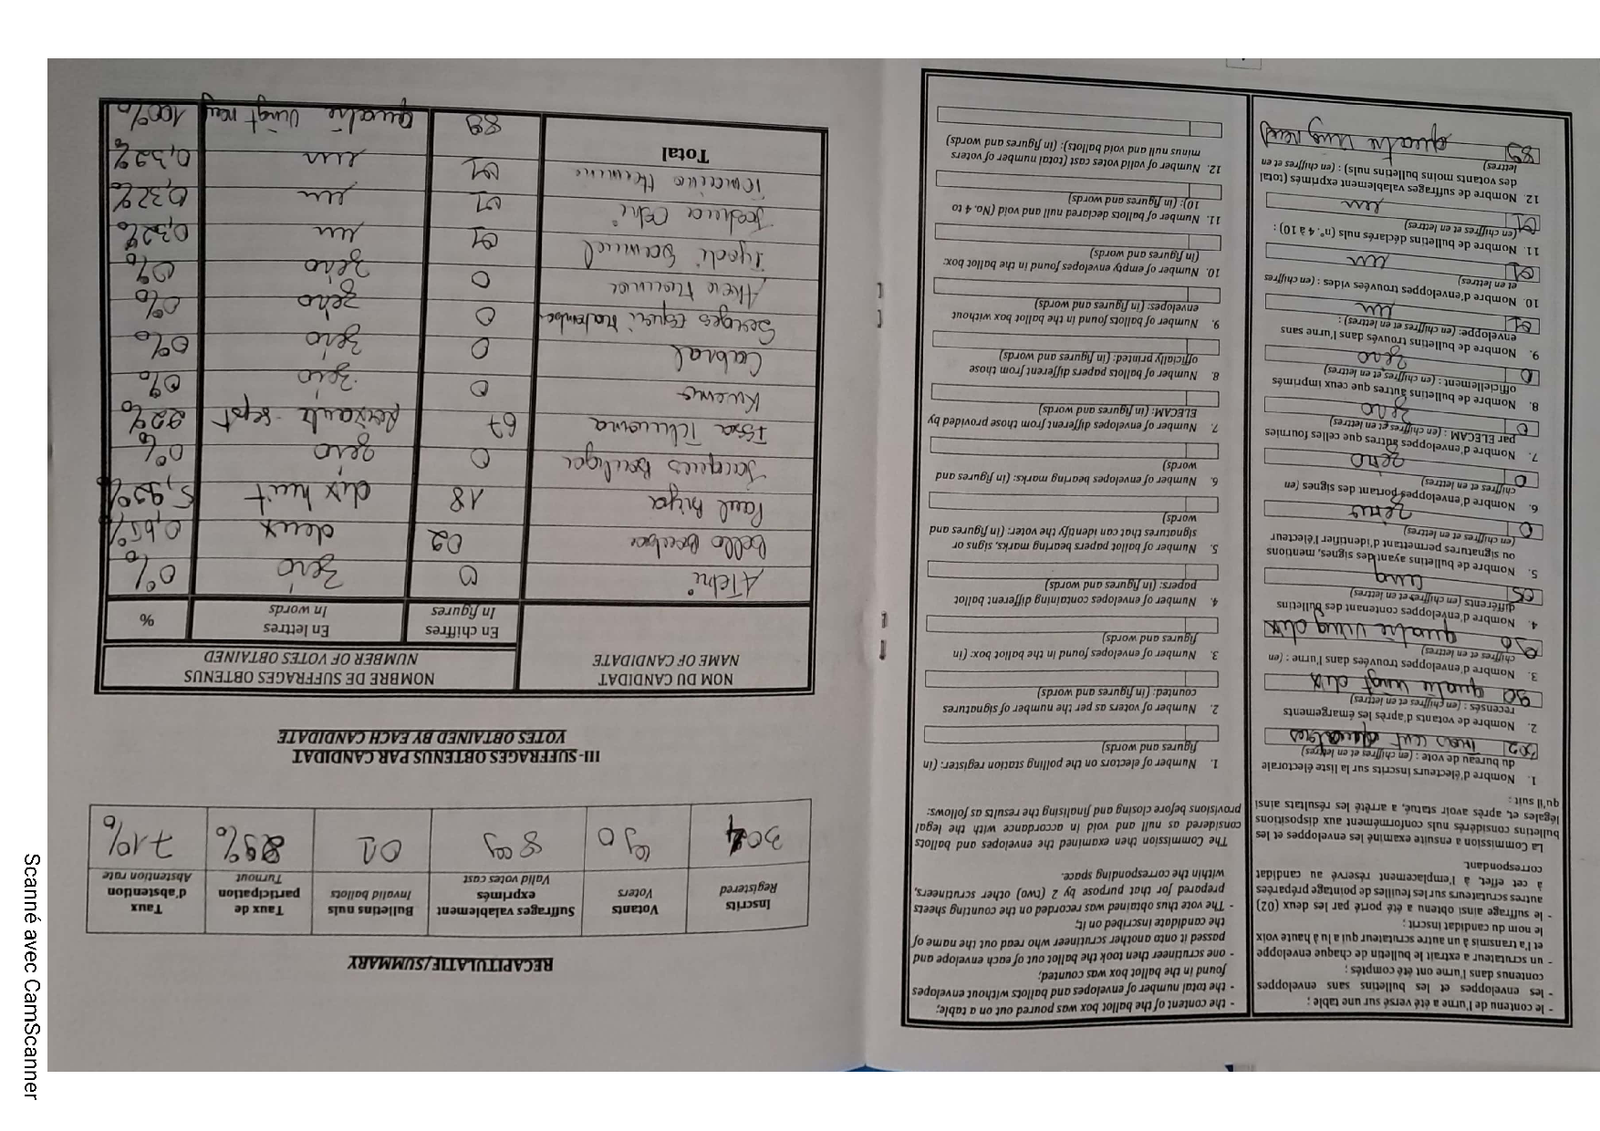 - le contenu de l'urne a été versé sur une table ;
- les enveloppes et les bulletins sans enveloppes
contenus dans l'urne ont été comptés ;
- un scrutateur a extrait le bulletin de chaque enveloppe
et l'a transmis à un autre scrutateur qui a lu à haute voix
le nom du candidat inscrit ;
- le suffrage ainsi obtenu a été porté par les deux (02)
autres scrutateurs sur les feuilles de pointage préparées
à cet effet, à l'emplacement réservé au candidat
correspondant.
La Commission a ensuite examiné les enveloppes et les
bulletins considérés nuls conformément aux dispositions
légales et, après avoir statué, a arrêté les résultats ainsi
qu'il suit :
1. Nombre d'électeurs inscrits sur la liste électorale
du bureau de vote : (en chiffres et en lettres)
trois cent
2. Nombre de votants d'après les émargements
recensés : (en chiffres et en lettres)
90 quatre vingt dix
3. Nombre d'enveloppes trouvées dans l'urne : (en
chiffres et en lettres)
90 quatre ving dix
4. Nombre d'enveloppes contenant des bulletins
différents (en chiffres et en lettres)
05 cinq
5. Nombre de bulletins ayant des signes, mentions
ou signatures permettant d'identifier l'électeur
(en chiffres et en lettres)
0
6. Nombre d'enveloppes portant des signes (en
chiffres et en lettres)
0 zéro
7. Nombre d'enveloppes autres que celles fournies
par ELECAM : (en chiffres et en lettres)
0 zéro
8. Nombre de bulletins autres que ceux imprimés
officiellement : (en chiffres et en lettres)
0 zéro
9. Nombre de bulletins trouvés dans l'urne sans
enveloppe: (en chiffres et en lettres) :
01 un
10. Nombre d'enveloppes trouvées vides : (en chiffres
et en lettres)
01 un
11. Nombre de bulletins déclarés nuls (n°. 4 à 10) :
(en chiffres et en lettres)
01 un
12 Nombre de suffrages valablement exprimés (total
des votants moins bulletins nuls) : (en chiffres et en
lettres)
89 quatre ving neuf
- the content of the ballot box was poured out on a table;
- the total number of envelopes and ballots without envelopes
found in the ballot box was counted;
- one scrutineer then took the ballot out of each envelope and
passed it onto another scrutineer who read out the name of
the candidate inscribed on it;
- The vote thus obtained was recorded on the counting sheets
prepared for that purpose by 2 (two) other scrutineers,
within the corresponding space.
The Commission then examined the envelopes and ballots
considered as null and void in accordance with the legal
provisions before closing and finalising the results as follows:
1. Number of electors on the polling station register: (in
figures and words)
2. Number of voters as per the number of signatures
counted: (in figures and words)
3. Number of envelopes found in the ballot box: (in
figures and words)
4. Number of envelopes containing different ballot
papers: (in figures and words)
5. Number of ballot papers bearing marks, signs or
signatures that can identify the voter: (in figures and
words)
6. Number of envelopes bearing marks: (in figures and
words)
7. Number of envelopes different from those provided by
ELECAM: (in figures and words)
8. Number of ballots papers different from those
officially printed: (in figures and words)
9. Number of ballots found in the ballot box without
envelopes: (in figures and words)
10. Number of empty envelopes found in the ballot box:
(in figures and words)
11. Number of ballots declared null and void (No. 4 to
10): (in figures and words)
12. Number of valid votes cast (total number of voters
minus null and void ballots): (in figures and words)
RECAPITULATIF/SUMMARY
Inscrits
Registered
Votants
Voters
Suffrages valablement
exprimés
Valid votes cast
Bulletins nuls
Invalid ballots
Taux de
participation
Turnout
Taux
d'abstention
Abstention rate
304 90 89 01 29% 71%
III- SUFFRAGES OBTENUS PAR CANDIDAT
VOTES OBTAINED BY EACH CANDIDATE
NOM DU CANDIDAT
NAME OF CANDIDATE
NOMBRE DE SUFFRAGES OBTENUS
NUMBER OF VOTES OBTAINED
En chiffres
In figures
En lettres
In words
%
Ateki 0 zéro 0%
Bello Bouba 02 deux 0,65%
Paul Biya 18 dix huit 5,92%
Jacques Bouligai 0 zéro 0%
Issa Tchiroma 67 Soixante-sept 22%
Kwemo 0 zéro 0%
Cabral 0 zéro 0%
Serges Espoir Matomba 0 zéro 0%
Akere Mouna 0 zéro 0%
Iyodi Samuel 01 un 0,32%
Joshua Oshi 01 un 0,32%
Tomaino Hermine 01 un 0,32%
Total 89 quatre vingt neuf 100%
Scanné avec CamScanner